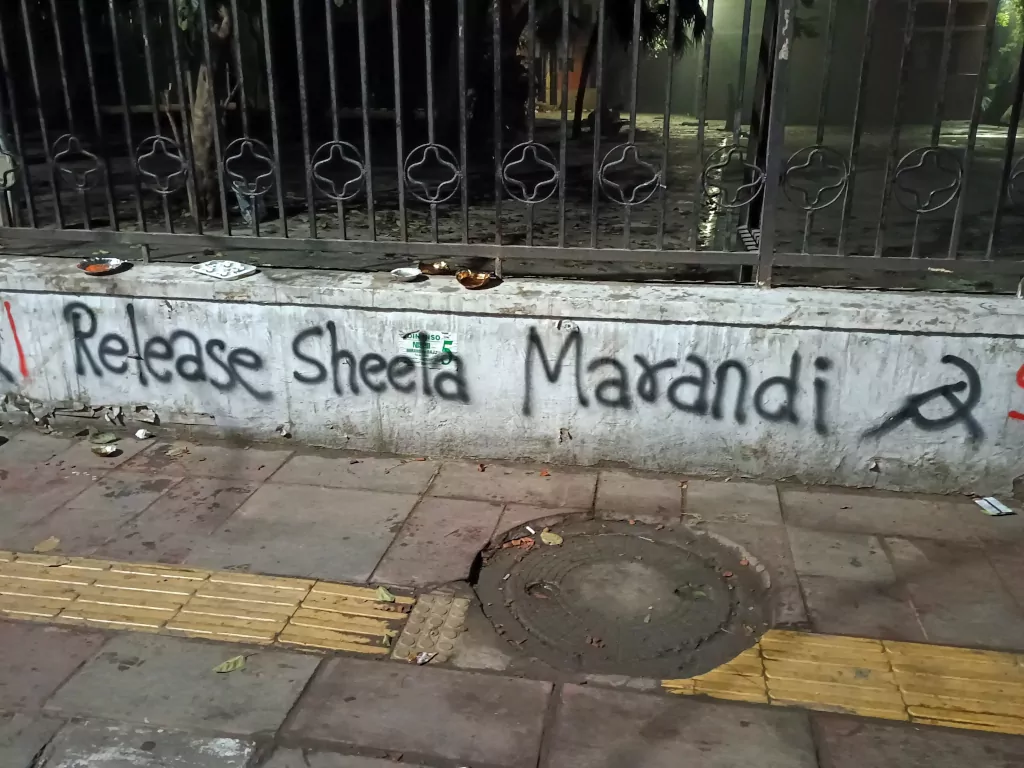 Release Sheela Marandi
5